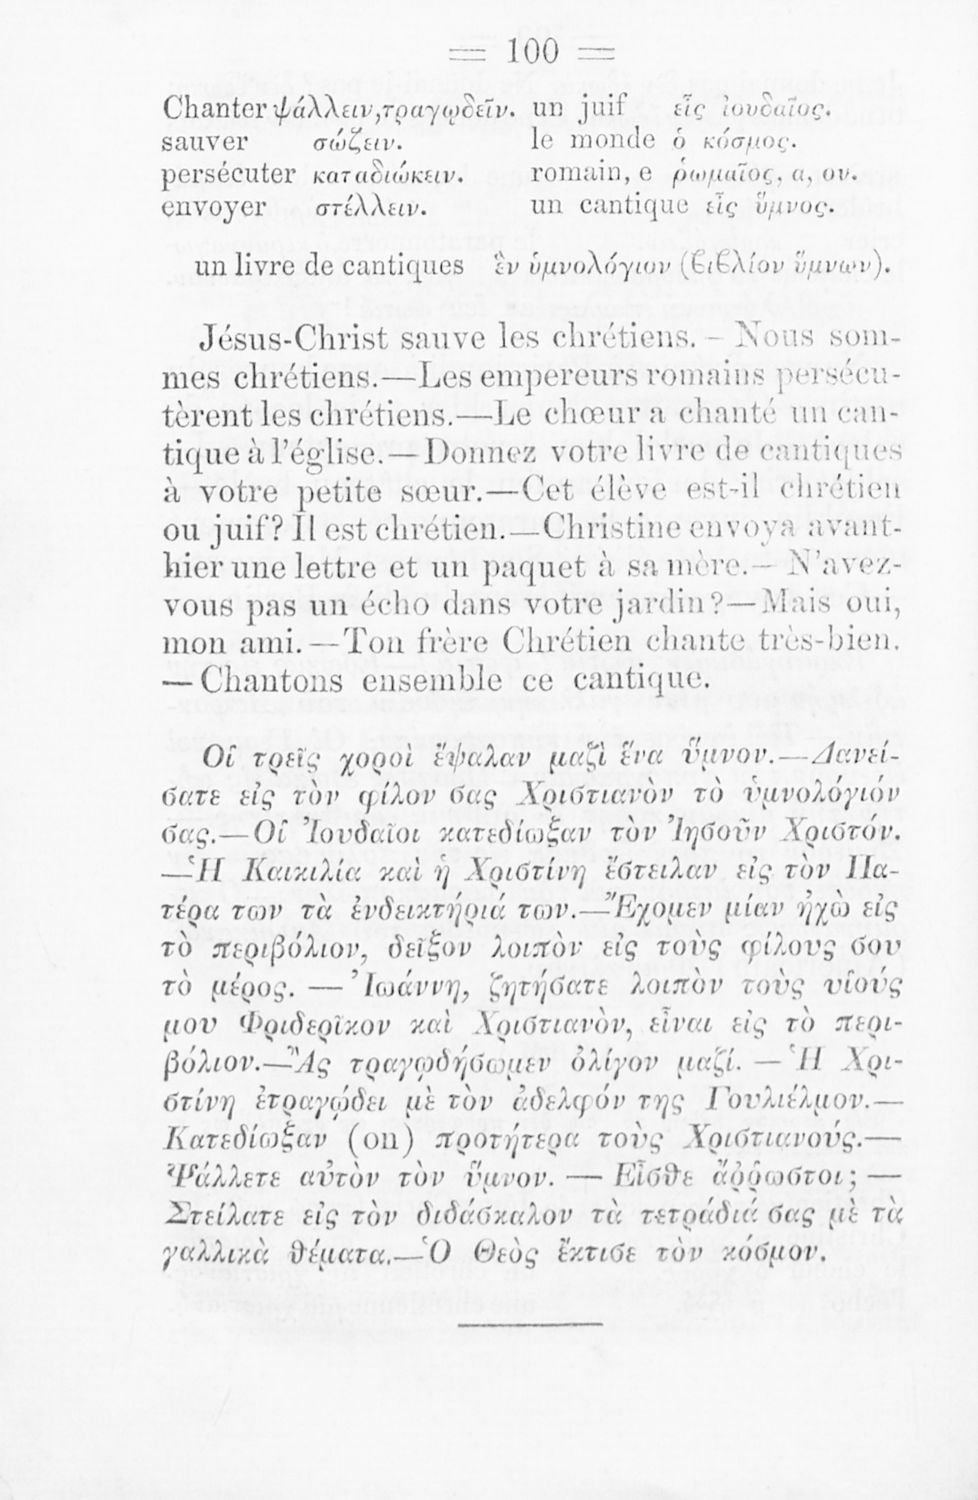 = 100 =
Chanter ψάλλειν, τραγῳδεῖν. un juif εἷς ἰουδαῖος.
sauver σώζειν. le monde ὁ κόσμος.
persécuter καταδιώκειν. romain, e ῥωμαῖος, α, ον.
envoyer στέλλειν. un cantique εἷς ὕμνος.
un livre de cantiques ἓν ὑμνολόγιον (βιβλίον ὕμνων).
Jésus-Christ sauve les chrétiens. – Nous som-
mes chrétiens.—Les empereurs romains persécu-
tèrent les chrétiens.—Le chœur a chanté un can-
tique à l'église.—Donnez votre livre de cantiques
à votre petite sœur.—Cet élève est-il chrétien
ou juif? Il est chrétien.—Christine envoya avant-
hier une lettre et un paquet à sa mère.— N'avez-
vous pas un écho dans votre jardin?—Mais oui,
mon ami.—Ton frère Chrétien chante très-bien.
—Chantons ensemble ce cantique.
Οἱ τρεῖς χοροὶ ἔψαλαν μαζὶ ἕνα ὕμνον.—Δανεί-
σατε εἰς τὸν φίλον σας Χριστιανὸν τὸ ὑμνολόγιόν
σας.—Οἱ Ἰουδαῖοι κατεδίωξαν τὸν Ἰησοῦν Χριστόν.
—Ἡ Καικιλία καὶ ἡ Χριστίνη ἔστειλαν εἰς τὸν Πα-
τέρα των τὰ ἐνδεικτήριά των.—Ἔχομεν μίαν ἠχὼ εἰς
τὸ περιβόλιον, δεῖξον λοιπὸν εἰς τοὺς φίλους σου
τὸ μέρος. — Ἰωάννη, ζητήσατε λοιπὸν τοὺς υἱούς
μου Φριδερῖκον καὶ Χριστιανὸν, εἶναι εἰς τὸ περι-
βόλιον.—Ἂς τραγῳδήσωμεν ὀλίγον μαζί. — Ἡ Χρι-
στίνη ἐτραγῴδει μὲ τὸν ἀδελφόν της Γουλιέλμον.—
Κατεδίωξαν (on) προτήτερα τοὺς Χριστιανούς.—
Ψάλλετε αὐτὸν τὸν ὕμνον. — Εἶσθε ἄῤῥωστοι; —
Στείλατε εἰς τὸν διδάσκαλον τὰ τετράδιά σας μὲ τὰ
γαλλικὰ θέματα.—Ὁ Θεὸς ἔκτισε τὸν κόσμον.